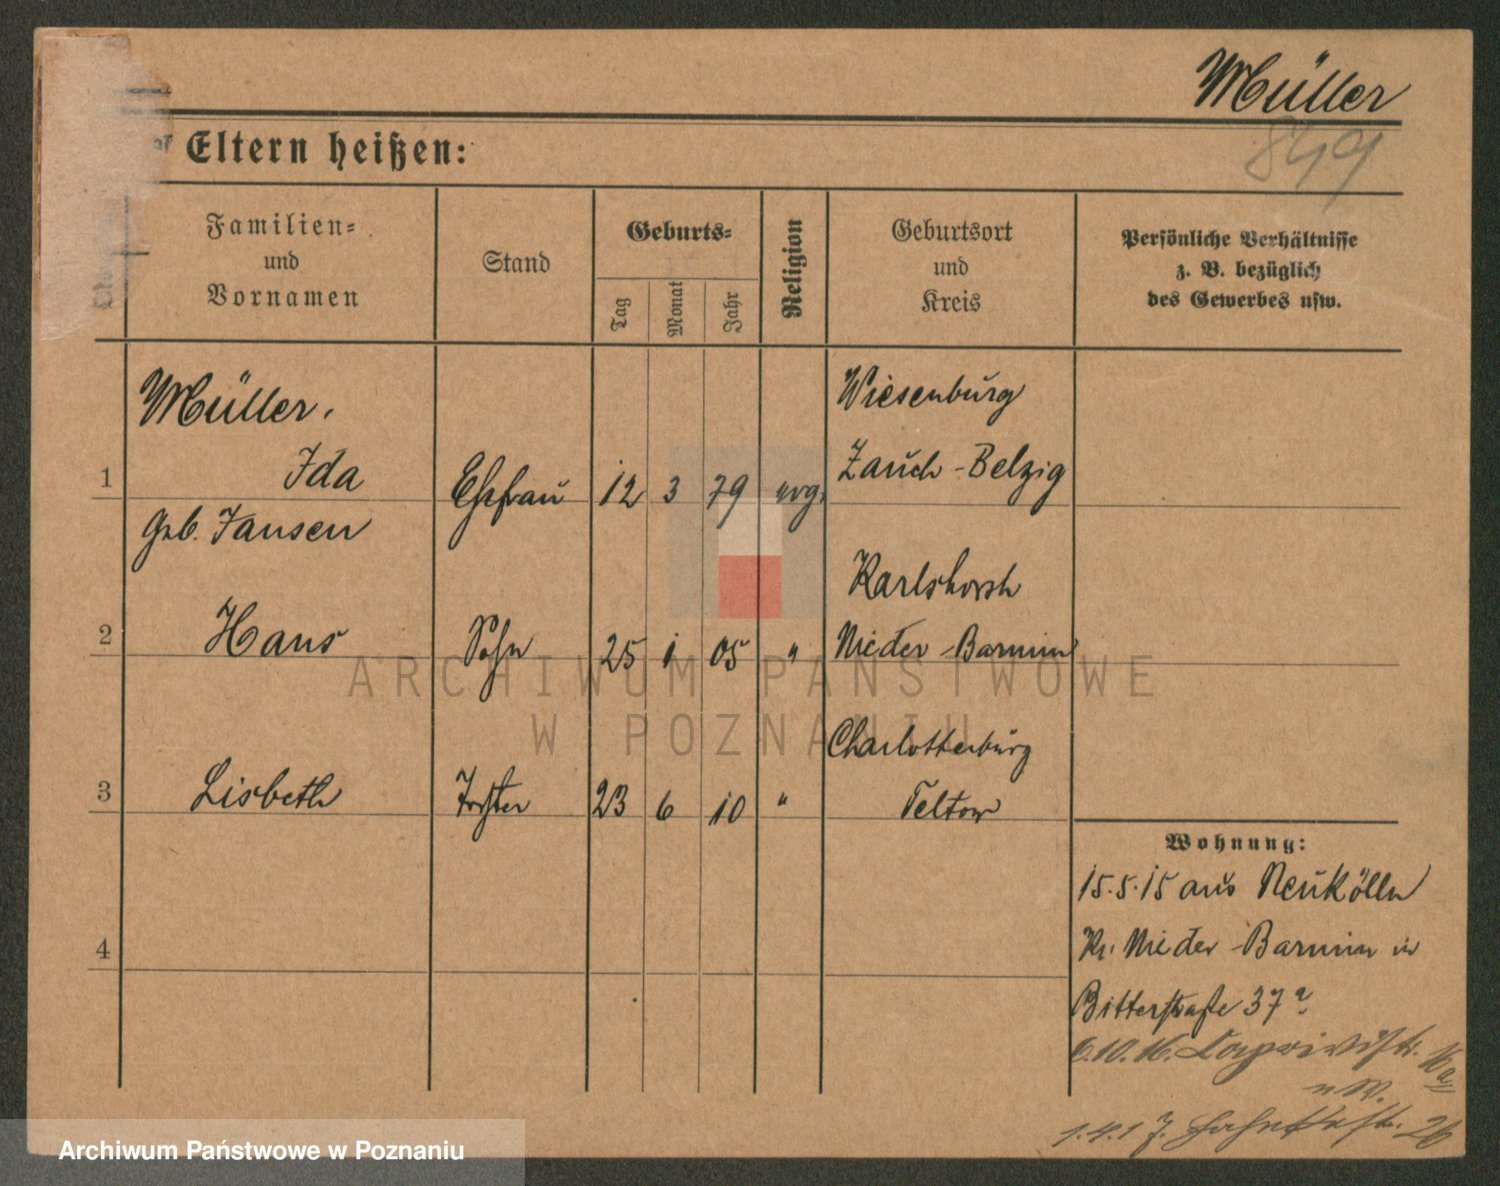 Müller
849
Eltern heißen:
Familien= und Vornamen
Stand
Geburts=
Tag
Monat
Jahr
Religion
Geburtsort und Kreis
Persönliche Verhältnisse
z. B. bezüglich
des Gewerbes usw.
Müller,
Wiesenburg
1 Ida Ehefrau 12 3 79 evg. Zauch-Belzig
geb. Jansen
Karlshorst
2 Hans Sohn 25 1 05 " Nieder-Barnim
Charlottenburg
3 Lisbeth Tochter 23 6 10 " Teltow
Wohnung:
15.5.15 aus Neukölln
4 Kr. Nieder-Barnim in
Bitterstraße 37a
6.10.16. Caprivistr.
1.4.17. 26
ARCHIWUM PAŃSTWOWE
W POZNANIU
Archiwum Państwowe w Poznaniu